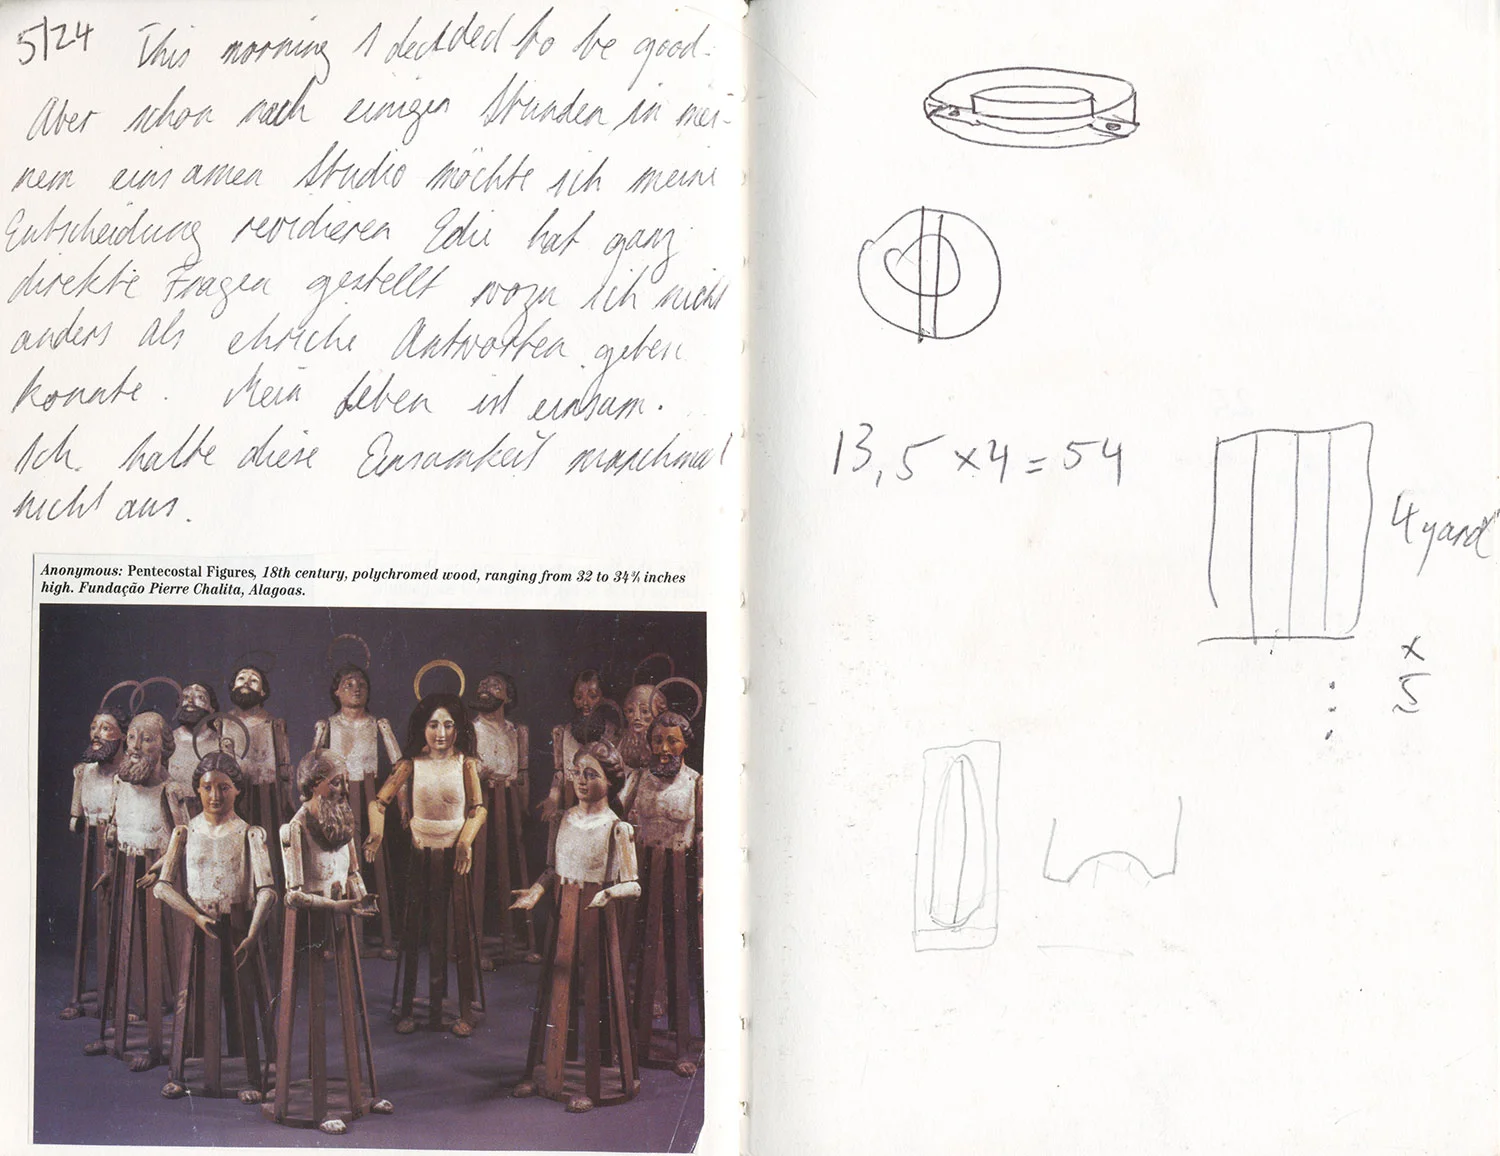 5/24 This morning I decided to be good.
Aber schon nach einigen Stunden in mei-
nem einsamen Studio möchte ich meine
Entscheidung revidieren Edie hat ganz
direkte Fragen gestellt wozu ich nicht
anders als ehrliche Antworten geben
konnte. Mein Leben ist einsam.
Ich halte diese Einsamkeit manchmal
nicht aus.
Anonymous: Pentecostal Figures, 18th century, polychromed wood, ranging from 32 to 34¾ inches
high. Fundação Pierre Chalita, Alagoas.
13,5 x 4 = 54
4 yard
x
5